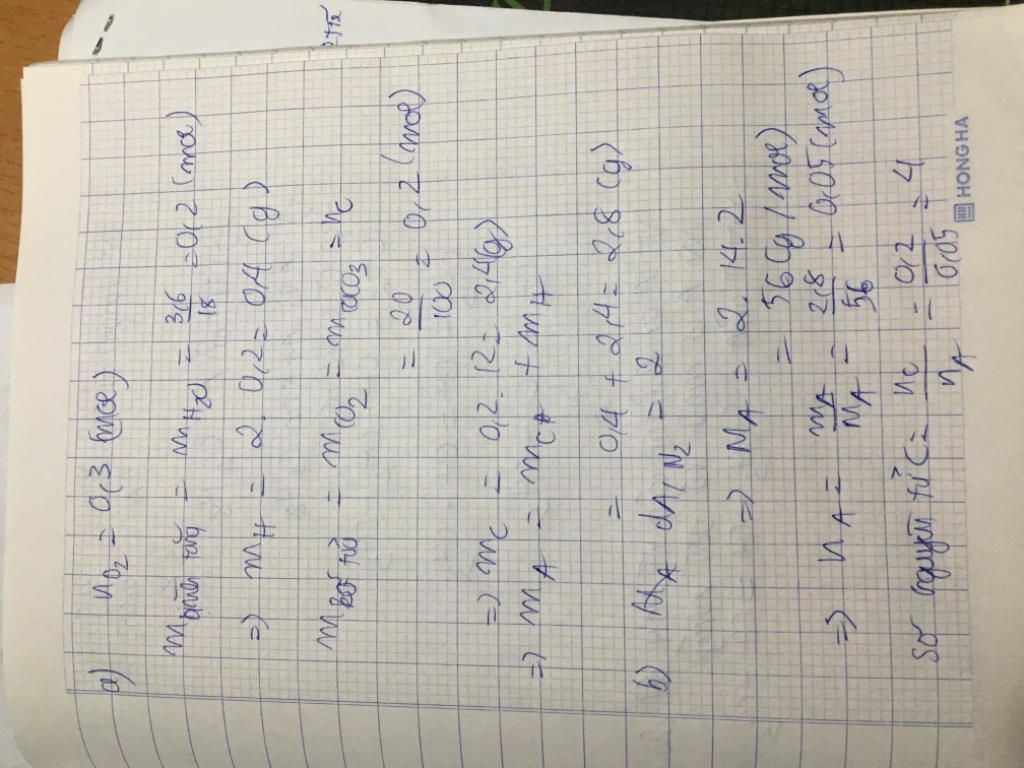 a) nO₂ = 0,3 (mol)
m bình tăng = mH₂O = 3,6/18 = 0,2 (mol)
=) mH = 2. 0,2 = 0,4 (g)
m kết tủa = mCO₂ = mCaCO₃ = nC
= 20/100 = 0,2 (mol)
=) mC = 0,2. 12 = 2,4(g)
=) mA = mC + mH
= 0,4 + 2,4 = 2,8 (g)
b) dA/N₂ = 2
=) MA = 2. 14. 2
= 56 (g/mol)
=) nA = mA/MA = 2,8/56 = 0,05 (mol)
Số nguyên tử C = nC/nA = 0,2/0,05 = 4
HONG HA